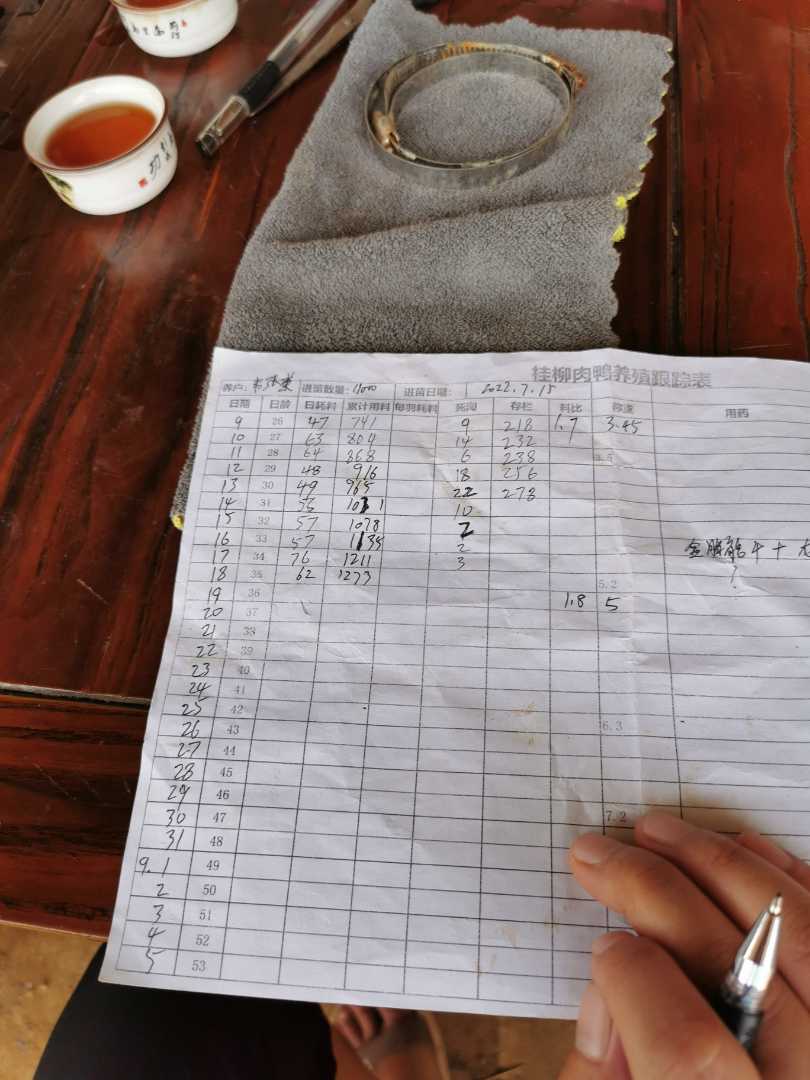 桂柳肉鸭养殖跟踪表
养户: 进苗数量: 11000 进苗日期: 2022.7.15
日期 日龄 日耗料 累计用料 每羽耗料 死淘 存栏 料比 称重 用药
9 26 47 741 9 218 1.7 3.45
10 27 63 804 14 232
11 28 64 868 6 238
12 29 48 916 18 256
13 30 49 965 22 278
14 31 10
15 32 57 1078 2
16 33 57 1135 2 金 千 十
17 34 76 1211 3
18 35 62 1273 5.2
19 36 1.8 5
20 37
21 38
22 39
23 40
24 41
25 42
26 43 6.3
27 44
28 45
29 46
30 47 7.2
31 48
9.1 49
2 50
3 51
4 52
5 53